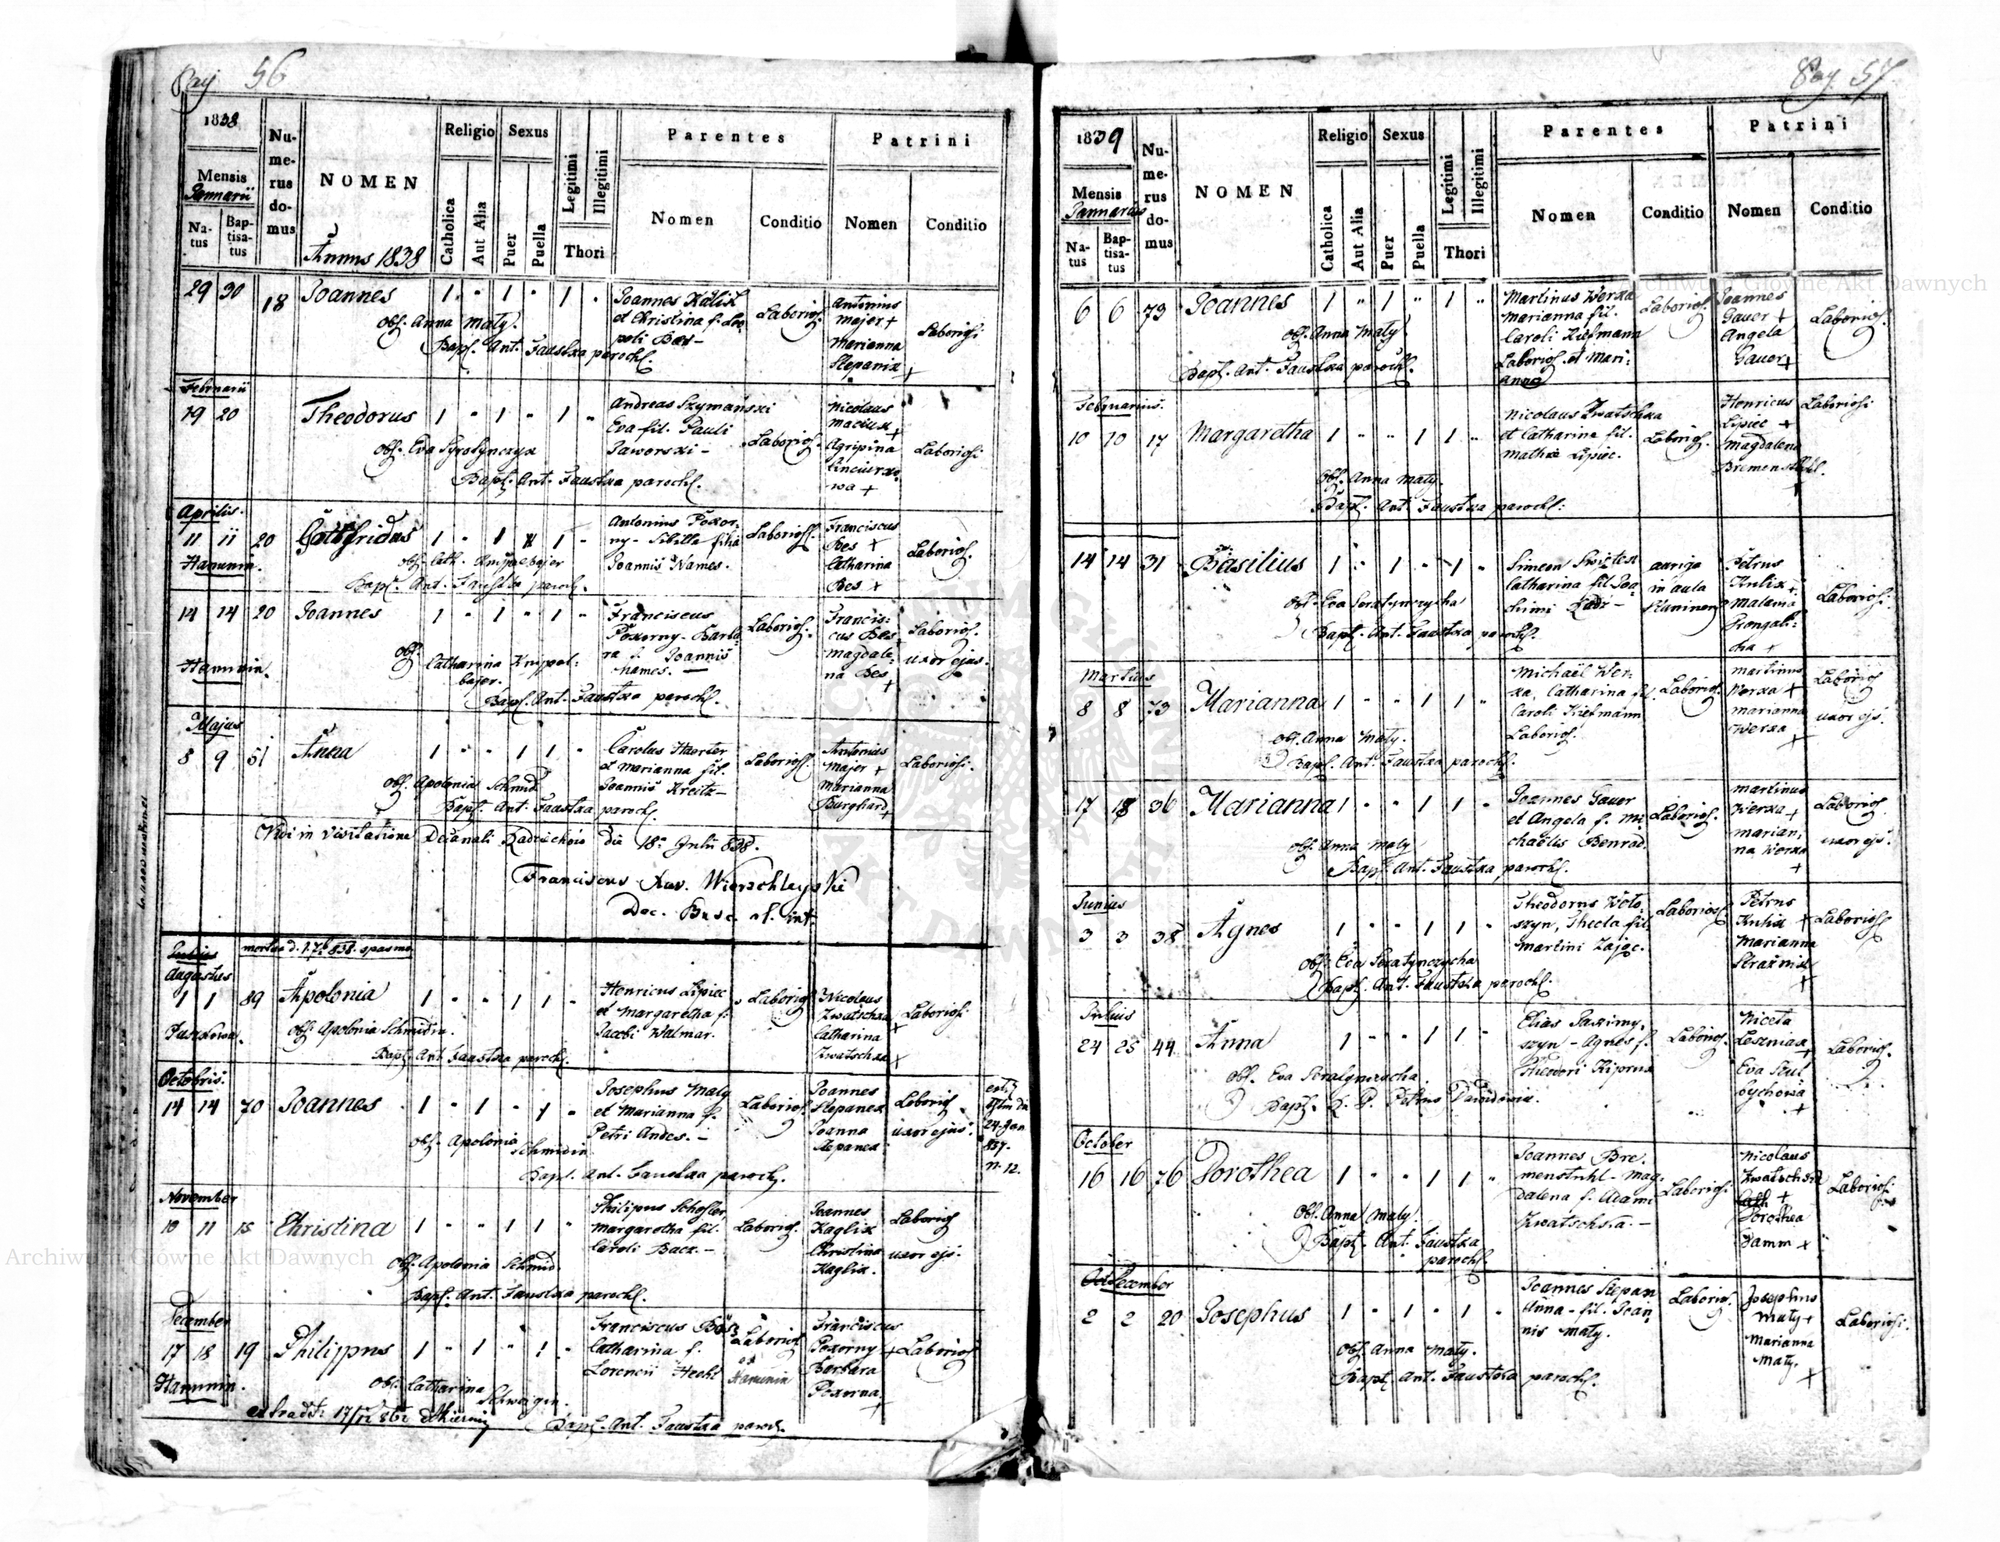 Pag 56
1838
Mensis
Januarii
Natus
Baptisatus
Numerus domus
NOMEN
Annus 1838
Religio
Catholica
Aut Alia
Sexus
Puer
Puella
Legitimi
Illegitimi
Thori
Parentes
Nomen
Conditio
Patrini
Nomen
Conditio
29 30 18 Joannes 1 " 1 " 1 "
Obst. Anna Maty.
Bapt. Ant. Faustka paroch.
Joannes
et Christina f. Leo
poli
Laborios.
Antonius
Majer +
Marianna
Stepanix +
Laboriosi
Februarii
19 20 Theodorus 1 " 1 " 1 "
Obst. Eva
Bapt. Ant. Faustka paroch.
Andreas Szymański
Eva fil. Pauli
Jaworski -
Laborios.
Nicolaus
Maciux +
Agripina
wa +
Laboriosi
Aprilis.
11 11 20 Gottfridus 1 " 1 1 "
Hanunin.
Obst. Cath.
Bapt. Ant. Faustka paroch.
Antonius Pokor-
ny - filia
Joannis Names.
Laborios.
Franciscus
Bes +
Catharina
Bes +
Laborios.
14 14 20 Joannes 1 " 1 " 1 "
Hanunin.
Obst.
Catharina Knypel-
bajer.
Bapt. Ant. Faustka paroch.
Franciscus
Pokorny - Barba
ra f. Joannis
Names. -
Laborios.
Francis-
cus Bes
Magdale-
na Bes +
Laborios.
uxor ejus.
Majus
8 9 51 Anna 1 " " 1 1 "
Obst. Apolonia Schmid.
Bapt. Ant. Faustka paroch.
Carolus Haerter
et Marianna fil.
Joannis Kreitz -
Laborios.
Antonius
Majer +
Marianna
Burghard +
Laboriosi.
Vidi in visitatione Decanali Radziechów die 18a Julii 838.
Franciscus Xav. Wierzchleyski
Dec. Busc. et int.
Julius
mortua d. 838. spasmo
Augustus
1 1 89 Apolonia 1 " " 1 1 "
Obst. Apolonia Schmidin.
Bapt. Ant. Faustka paroch.
Henricus Lipiec
et Margaretha f.
Jacobi Walmar.
Laborios.
Nicolaus
Kwatschka +
Catharina
Kwatschka +
Laboriosi
Octobris.
14 14 70 Joannes 1 " 1 " 1 "
Obst. Apolonia
Schmidin
Bapt. Ant. Faustka paroch.
Josephus Maty
et Marianna f.
Petri Andes. -
Laborios.
Joannes
Stepanex
Joanna
Stepanex
Laborios
uxor ejus.
24. Jan
857.
N. 12.
November
10 11 18 Christina 1 " " 1 1 "
Obst. Apolonia Schmid.
Bapt. Ant. Faustka paroch.
Philipus Schefler
Margaretha fil.
Caroli Back. -
Laborios.
Joannes
Kaglix
Christina
Kaglix.
Laborios
uxor ejs.
December
17 18 19 Philippus 1 " 1 " 1 "
Hanunin.
Obst. Catharina
Schweigin.
Bapt. Ant. Faustka paroch.
Franciscus
Catharina f.
Lorencii Hecht
Laborios
ex
Hanunin
Franciscus
Pokorny +
Barbara
Pokorna +
Laborios
Pag. 57.
1839
Mensis
Januarius
Natus
Baptisatus
Numerus domus
NOMEN
Religio
Catholica
Aut Alia
Sexus
Puer
Puella
Legitimi
Illegitimi
Thori
Parentes
Nomen
Conditio
Patrini
Nomen
Conditio
6 6 73 Joannes 1 " 1 " 1 "
Obst. Anna Maty
Bapt. Ant. Faustka paroch.
Martinus Werxa
Marianna fil.
Caroli Kiefmann
Laborios. et Mari-
anna
Laborios.
Joannes
Gauer +
Angela
Gauer +
Laborios.
Februarius.
10 10 17 Margaretha 1 " " 1 1 "
Obst. Anna Maty.
Bapt. Ant. Faustka paroch.
Nicolaus Kwatschka
et Catharina fil.
Mathia Lipiec.
Laborios.
Henricus
Lipiec +
Magdalena
Bremenstuhl. +
Laboriosi
14 14 31 Basilius 1 " 1 " 1 "
Obst. Eva Seratynczycha
Bapt. Ant. Faustka paroch.
Simeon
Catharina fil. Joa-
chimi
auriga
in aula
Petrus
Kulix +
Malania
cha +
Laboriosi.
Martius
8 8 73 Marianna 1 " " 1 1 "
Obst. Anna Maty.
Bapt. Ant. Faustka paroch.
Michaël Wer-
xa, Catharina fil.
Caroli Kiefmann
Laborios.
Laborios.
Martinus
Werxa +
Marianna
Werxa +
Laborios
uxor ejs.
17 18 36 Marianna 1 " " 1 1 "
Obst. Anna Maty
Bapt. Ant. Faustka paroch.
Joannes Gauer
et Angela f. Mi-
chaëlis Benrad.
Laborios.
Martinus
Werxa +
Marian,
na Werxa +
Laborios
uxor ejs.
Junius
3 3 38 Agnes 1 " " 1 1 "
Obst. Eva Seratynczycha
Bapt. Ant. Faustka paroch.
Theodorus Woło-
szyn, Thecla fil.
Martini Zając.
Laborios.
Petrus
Kulix +
Marianna
+
Laborios
Julius
24 25 44 Anna 1 " " 1 1 "
Obst. Eva Seratynczycha
Bapt. R. P. Petrus
Elias
Agnes f.
Theodori
Laborios.
Niceta
Leszniax +
Eva
+
Laborios.
October
16 16 76 Dorothea 1 " " 1 1 "
Obst. Anna Maty.
Bapt. Ant. Faustka
paroch.
Joannes Bre-
menstuhl - Mag-
dalena f. Adami
Kwatschka. -
Laborios.
Nicolaus
Kwatschka
+
Dorothea
Damm +
Laborios.
December
2 2 20 Josephus 1 " 1 " 1 "
Obst. Anna Maty.
Bapt. Ant. Faustka paroch.
Joannes Stepan
Anna - fil. Joan-
nis Maty.
Laborios.
Josephus
Maty +
Marianna
Maty. +
Laboriosi.
Archiwum Główne Akt Dawnych
Archiwum Główne Akt Dawnych